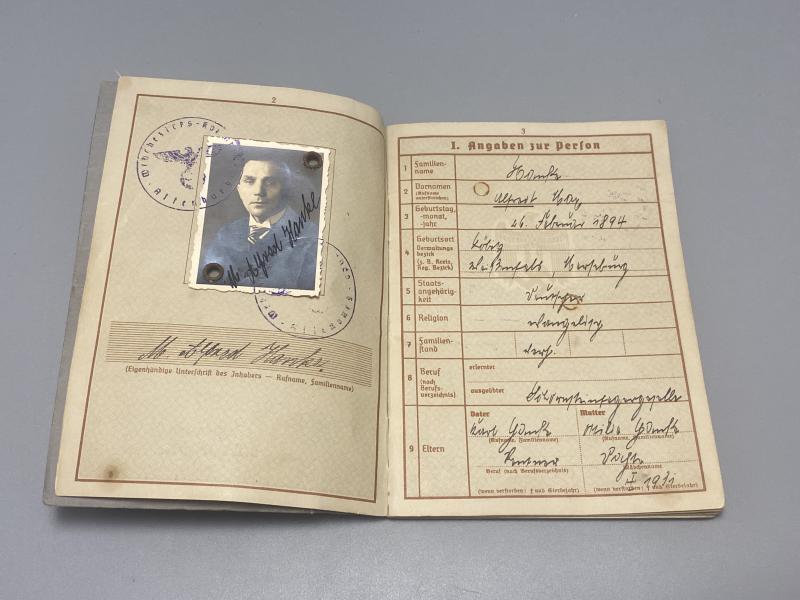 2
Altenburg
M. Alfred Hanke
M. Alfred Hanke.
(Eigenhändige Unterschrift des Inhabers — Rufname, Familienname)
3
I. Angaben zur Person
1 Familien-
name
Hanke
2 Vornamen
(Rufname
unterstreichen)
Alfred
3 Geburtstag,
-monat,
-jahr
26. Februar 1894
4 Geburtsort
Verwaltungs-
bezirk
(z. B. Kreis,
Reg. Bezirk)
Weißenfels, Merseburg
5 Staats-
angehörig-
keit
Deutscher
6 Religion
evangelisch
7 Familien-
stand
verh.
8 Beruf
(nach
Berufs-
verzeichnis)
erlernter
ausgeübter
Schornsteinfegergeselle
9 Eltern
Vater
Karl Hanke
(Rufname, Familienname)
Rentner
Beruf (nach Berufsverzeichnis)
(wenn verstorben: † und Sterbejahr)
Mutter
Hanke
(Rufname, Familienname)
Mädchenname
(wenn verstorben: † und Sterbejahr)